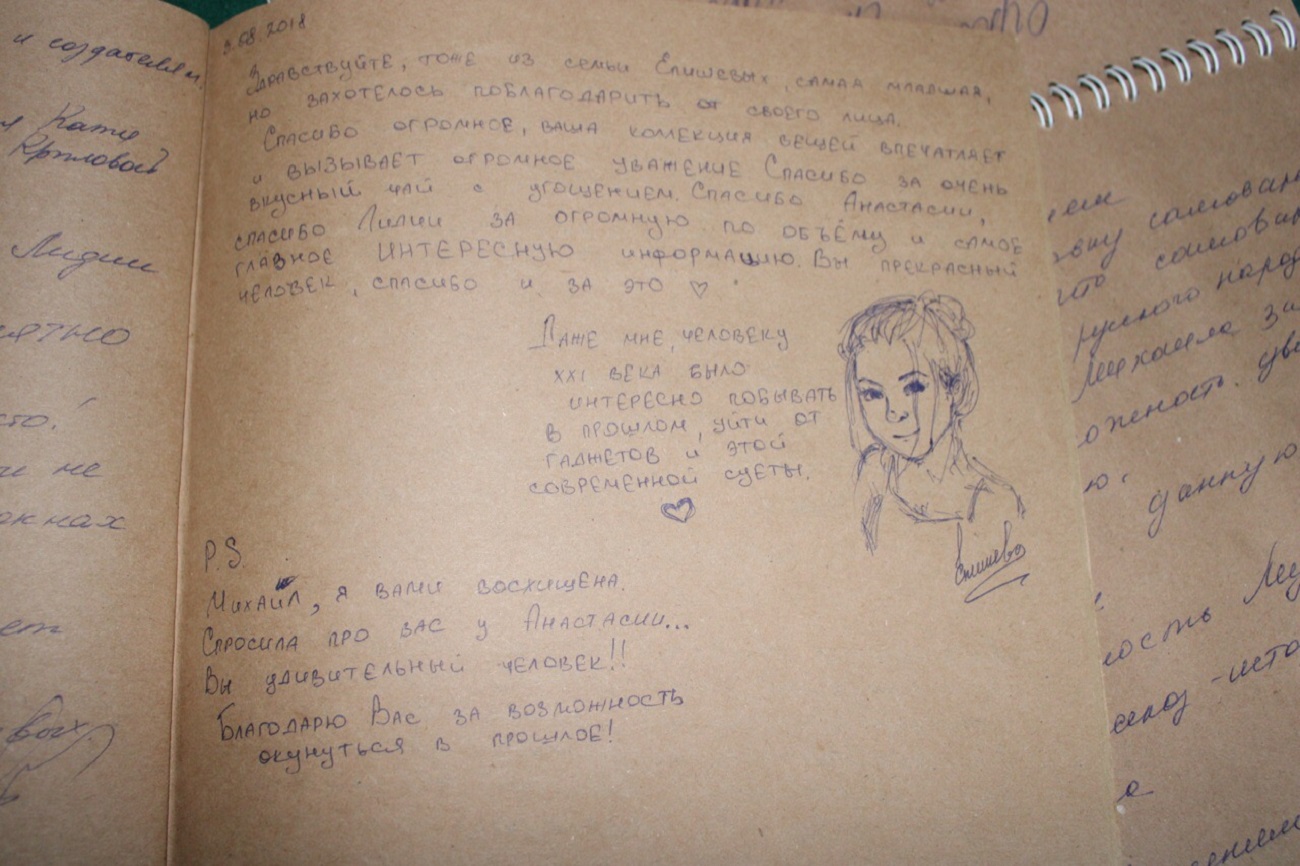 и создателям
Кате
Крыловой
Лидии
сто!
и не
окнах
9.08.2018
Здравствуйте, тоже из семьи Елишевых, самая младшая,
но захотелось поблагодарить от своего лица.
Спасибо огромное, ваша коллекция вещей впечатляет
и вызывает огромное уважение Спасибо за очень
вкусный чай с угощением. Спасибо Анастасии,
спасибо Лилии за огромную по объёму и самое
главное ИНТЕРЕСНУЮ информацию. Вы прекрасный
человек, спасибо и за это ♡
Даже мне, человеку
XXI века было
интересно побывать
в прошлом, уйти от
гаджетов и этой
современной суеты.
♡
Елишева
P.S.
Михаил, я вами восхищена.
Спросила про вас у Анастасии...
Вы удивительный человек!!
Благодарю Вас за возможность
окунуться в прошлое!
Михаила
данную